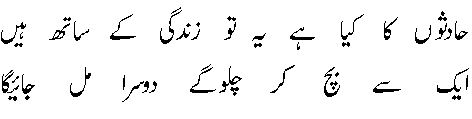 حادثوں کا کیا ہے یہ تو زندگی کے ساتھ ہیں
ایک سے بچ کر چلوگے دوسرا مل جائیگا